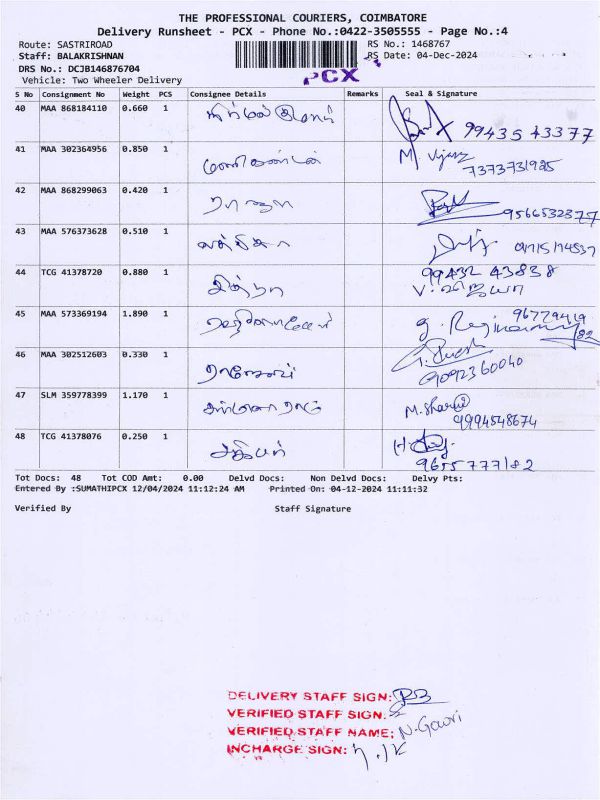 THE PROFESSIONAL COURIERS, COIMBATORE
Delivery Runsheet - PCX - Phone No.:0422-3505555 - Page No.:4
Route: SASTRIROAD RS No.: 1468767
Staff: BALAKRISHNAN RS Date: 04-Dec-2024
DRS No.: DCJB146876704
Vehicle: Two Wheeler Delivery PCX
S No Consignment No Weight PCS Consignee Details Remarks Seal & Signature
40 MAA 868184110 0.660 1 99435 43377
41 MAA 302364956 0.850 1 மணிகண்டன் M. Vijay
7373731925
42 MAA 868299063 0.420 1 ராஜா
9566532377
43 MAA 576373628 0.510 1
44 TCG 41378720 0.880 1 சித்ரா 99432 43838
V. விஜயா
45 MAA 573369194 1.890 1
46 MAA 302512603 0.330 1
9092360040
47 SLM 359778399 1.170 1 M. Sharmi
9994548674
48 TCG 41378076 0.250 1
9655777182
Tot Docs: 48 Tot COD Amt: 0.00 Delvd Docs: Non Delvd Docs: Delvy Pts:
Entered By :SUMATHIPCX 12/04/2024 11:12:24 AM Printed On: 04-12-2024 11:11:32
Verified By Staff Signature
DELIVERY STAFF SIGN:
VERIFIED STAFF SIGN:
VERIFIED STAFF NAME: N. Gowri
INCHARGE SIGN: